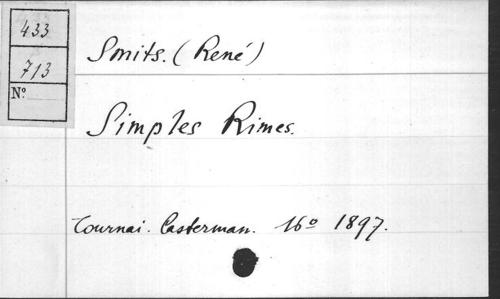 433
713
Nº
Smits. (René)
Simples Rimes.
Tournai. Casterman. 16º 1897.